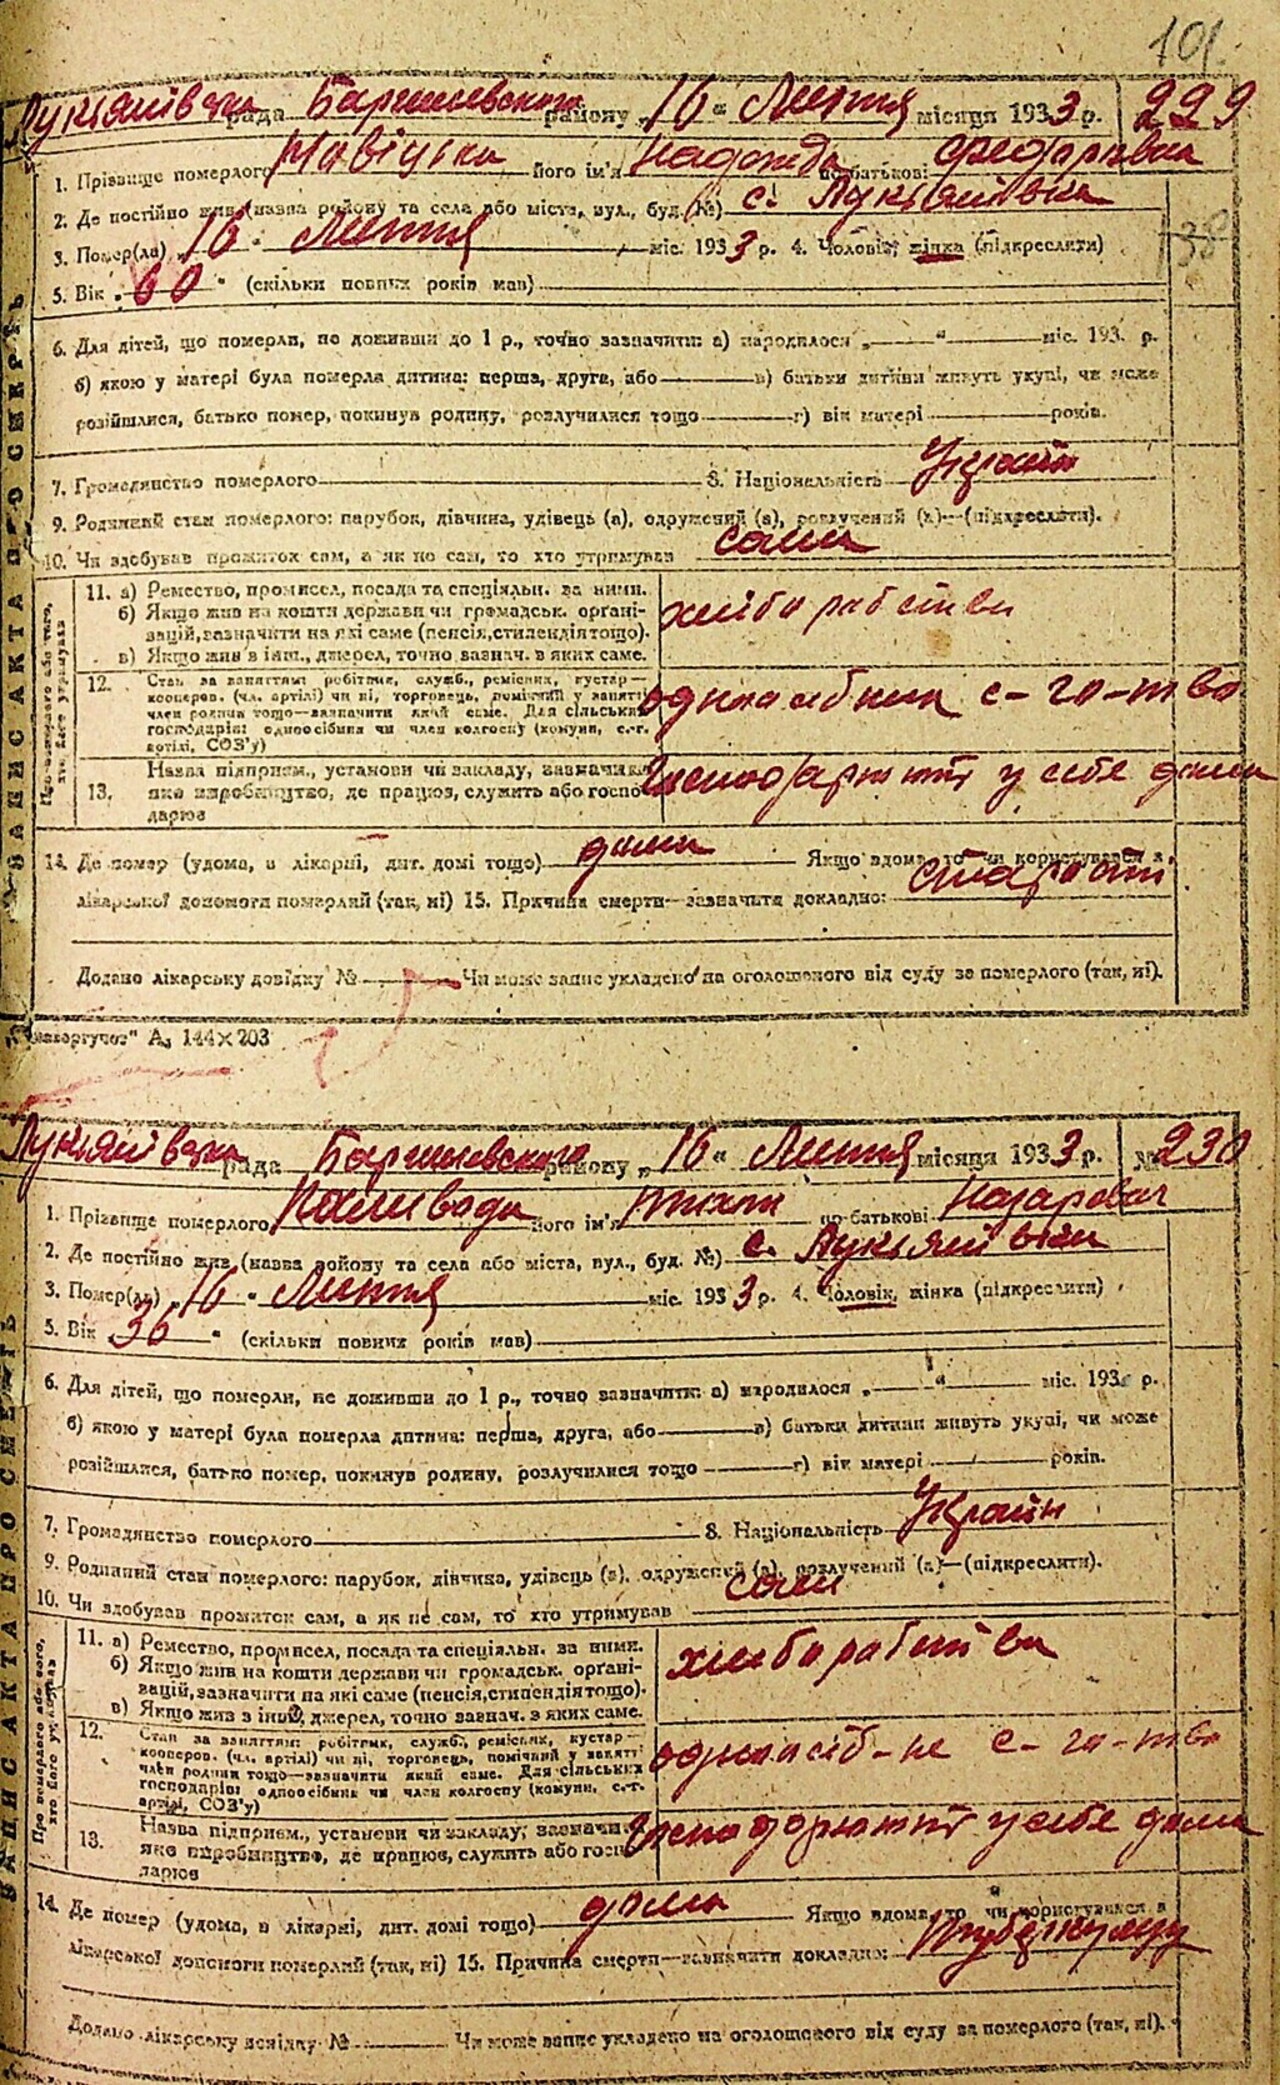 101.
Лукянівська рада Баришевського району „16" Лютня місяця 1933 р. 229
1. Прізвище померлого його ім'я Надежда по батькові Федоровна
2. Де постійно жив (назва району та села або міста, вул., буд. №) с. Лукьянівка
3. Помер(ла) „16" Лютня міс. 1933 р. 4. Чоловік, жінка (підкреслити)
138
5. Вік „60" (скільки повних років мав)
6. Для дітей, що померли, не доживши до 1 р., точно зазначити: а) народилося „ " міс. 193 р.
б) якою у матері була померла дитина: перша, друга, або в) батьки дитини живуть укупі, чи може
розійшлися, батько помер, покинув родину, розлучилися тощо г) вік матері років.
7. Громадянство померлого 8. Національність Україн
9. Родинний стан померлого: парубок, дівчина, удівець (а), одружений (а), розлучений (а)—(підкреслити).
10. Чи здобував прожиток сам, а як не сам, то хто утримував сама
ЗАПИС АКТА ПРО СМЕРТЬ
Про померлого або того, хто його утримував
11. а) Ремество, промисел, посада та спеціяльн. за ними.
б) Якщо жив на кошти держави чи громадськ. органі-
зацій, зазначити на які саме (пенсія, стипендія тощо).
в) Якщо жив з інш., джерел, точно зазнач. з яких саме.
хлібо рабство
12. Стан за заняттям: робітник, служб., ремісник, кустар—
кооперов. (чл. артілі) чи ні, торговець, помічний у занятті
член родини тощо—зазначити який саме. Для сільських
господарів: одноосібник чи член колгоспу (комуни, с.-г.
артілі, СОЗ'у)
одноосібник с-го-тво
13. Назва підприєм., установи чи закладу, зазначити
яке виробництво, де працює, служить або госпо-
дарює
у себе дома
14. Де помер (удома, в лікарні, дит. домі тощо) дома Якщо вдома, то чи користувався з
лікарської допомоги померлий (так, ні) 15. Причина смерти—зазначити докладно: старость
Додано лікарську довідку № Чи може запис укладено на оголошеного від суду за померлого (так, ні).
А₃ 144×203
Лукянівська рада Баришевського району „16" Лютня місяця 1933 р. № 230
1. Прізвище померлого Паливода його ім'я Тихон по батькові Назарович
2. Де постійно жив (назва району та села або міста, вул., буд. №) с. Лукьянівка
3. Помер(ла) „16" Лютня міс. 1933 р. 4. Чоловік, жінка (підкреслити)
5. Вік „36" (скільки повних років мав)
6. Для дітей, що померли, не доживши до 1 р., точно зазначити: а) народилося „ " міс. 193 р.
б) якою у матері була померла дитина: перша, друга, або в) батьки дитини живуть укупі, чи може
розійшлися, батько помер, покинув родину, розлучилися тощо г) вік матері років.
7. Громадянство померлого 8. Національність Україн
9. Родинний стан померлого: парубок, дівчина, удівець (а), одружений (а), розлучений (а)—(підкреслити).
10. Чи здобував прожиток сам, а як не сам, то хто утримував сам
ЗАПИС АКТА ПРО СМЕРТЬ
Про померлого або того, хто його утримував
11. а) Ремество, промисел, посада та спеціяльн. за ними.
б) Якщо жив на кошти держави чи громадськ. органі-
зацій, зазначити на які саме (пенсія, стипендія тощо).
в) Якщо жив з інш., джерел, точно зазнач. з яких саме.
хлібо рабство
12. Стан за заняттям: робітник, служб., ремісник, кустар—
кооперов. (чл. артілі) чи ні, торговець, помічний у занятті
член родини тощо—зазначити який саме. Для сільських
господарів: одноосібник чи член колгоспу (комуни, с.-г.
артілі, СОЗ'у)
одноосіб-не с-го-тво
13. Назва підприєм., установи чи закладу, зазначити
яке виробництво, де працює, служить або госпо-
дарює
у себе дома
14. Де помер (удома, в лікарні, дит. домі тощо) дома Якщо вдома, то чи користувався з
лікарської допомоги померлий (так, ні) 15. Причина смерти—зазначити докладно:
Додано лікарську довідку № Чи може запис укладено на оголошеного від суду за померлого (так, ні).